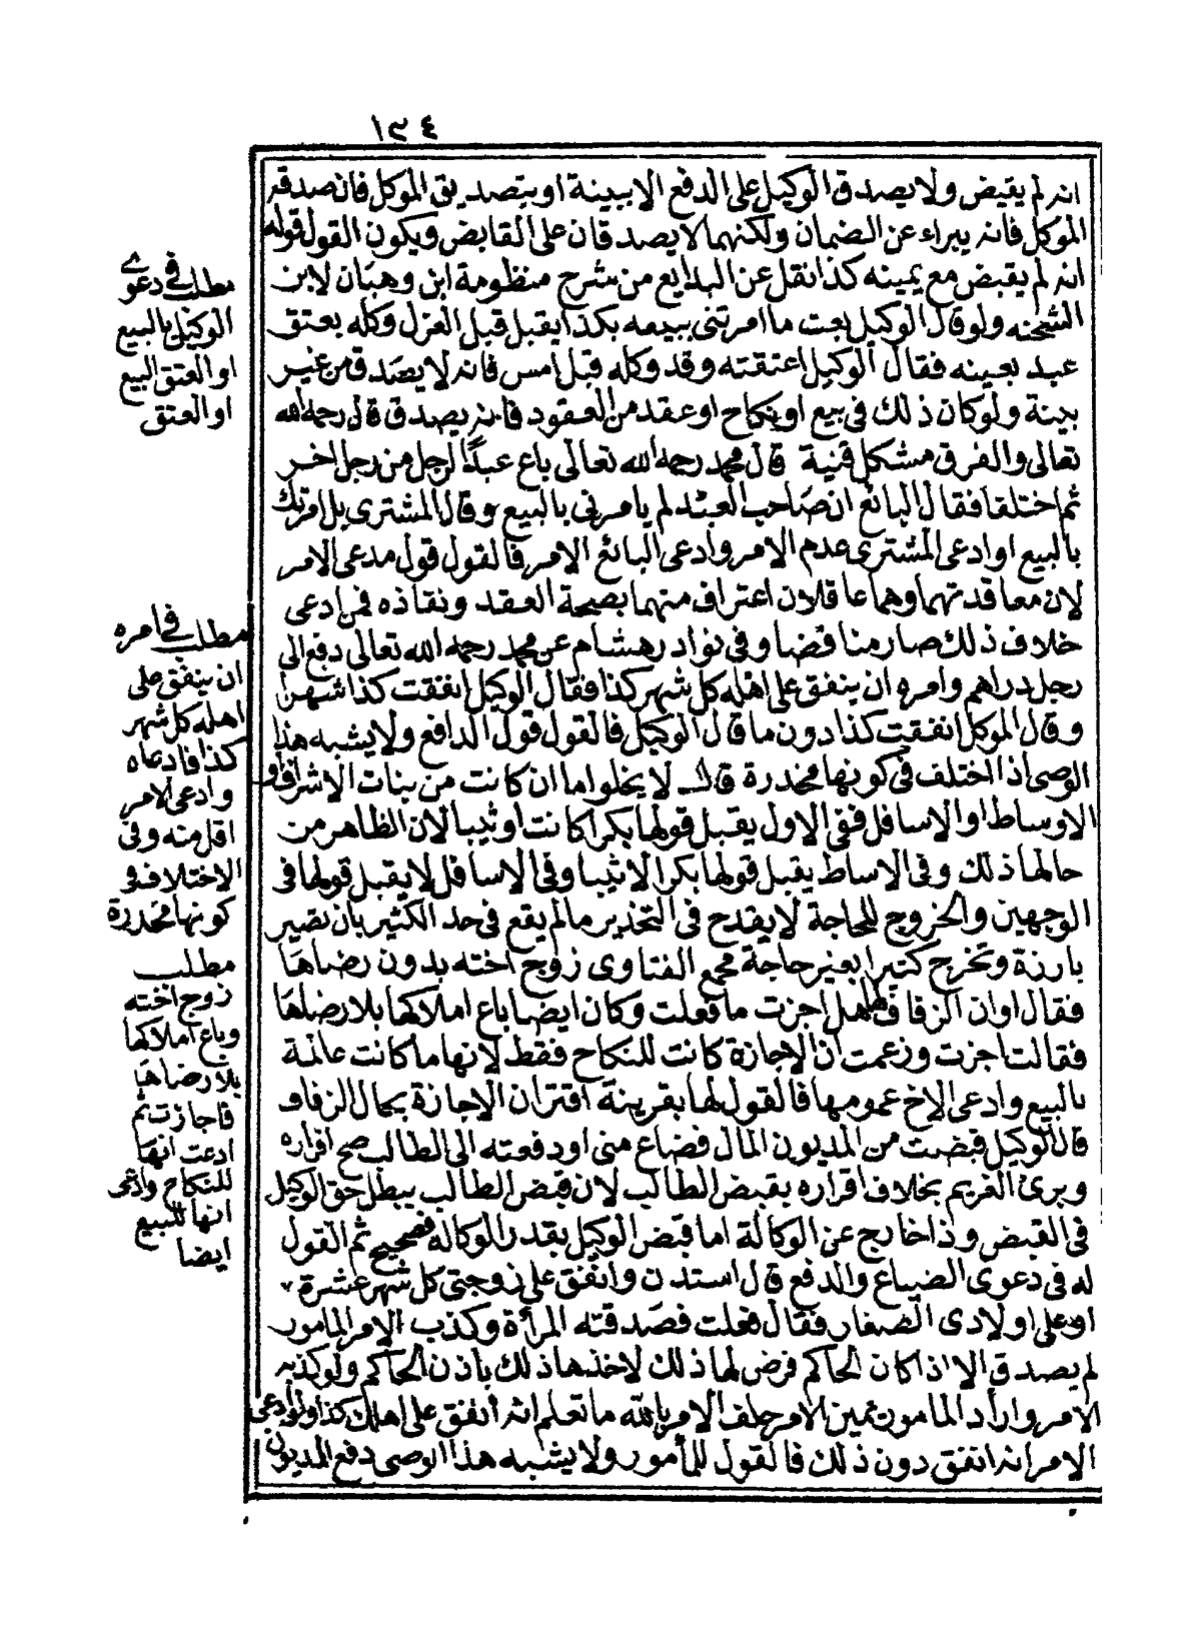 ١٣٤
انه لم يقبض ولا يصدق الوكيل على الدفع الا ببينة او بتصديق الموكل فان صدقه
الموكل فانه يبراء عن الضمان ولكنهما لا يصدقان على القابض ويكون القول قوله
انه لم يقبض مع يمينه كذا نقل عن البدايع من شرح منظومة ابن وهبان لابن
الشحنه ولو قال الوكيل بعت ما امرتنى ببيعه بكذا يقبل قبل العزل وكله بعتق
عبد بعينه فقال الوكيل اعتقته وقد وكله قبل امس فانه لا يصدق من غير
بينة ولو كان ذلك فى بيع او نكاح او عقد من العقود فانه يصدق قال رحمه الله
تعالى والفرق مشكل قنية قال محمد رحمه الله تعالى باع عبدا لرجل من رجل اخر
ثم اختلفا فقال البائع ان صاحب العبد لم يامرنى بالبيع وقال المشترى بل امرتك
بالبيع او ادعى المشترى عدم الامر وادعى البائع الامر فالقول قول مدعى الامر
لان معاقدتهما وهما عاقلان اعتراف منهما بصحة العقد ونفاذه فمن ادعى
خلاف ذلك صار مناقضا وفى نوادر هشام عن محمد رحمه الله تعالى دفع الى
رجل دراهم وامره ان ينفق على اهله كل شهر كذا فقال الوكيل انفقت كذا شهرا
وقال الموكل انفقت كذا دون ما قال الوكيل فالقول قول الدافع ولا يشبه هذا
الوصى اذا اختلف فى كونها مخدرة قال لا يخلوا اما ان كانت من بنات الاشراف او
الاوساط او الاسافل ففى الاول يقبل قولها بكرا كانت او ثيبا لان الظاهر من
حالها ذلك وفى الاساط يقبل قولها بكرا لا ثيبا وفى الاسافل لا يقبل قولها فى
الوجهين والخروج للحاجة لا يقدح فى التخذير ما لم يقع فى حد الكثير بان تصير
بارزة وتخرج كثيرا بغير حاجة مجمع الفتاوى زوج اخته بدون رضاها
فقال اوان الزفاف لها هل اجزت ما فعلت وكان ايضا باع املاكها بلا رضاها
فقالت اجزت وزعمت ان الاجازة كانت للنكاح فقط لانها ما كانت عالمة
بالبيع وادعى الاخ عمومها فالقول لها بقرينة اقتران الاجازة بحال الزفاف
قال الوكيل قبضت من المديون المال فضاع منى او دفعته الى الطالب صح اقراره
وبرئ الغريم بخلاف اقراره بقبض الطالب لان قبض الطالب يبطل حق الوكيل
فى القبض وذا خارج عن الوكالة اما قبض الوكيل بقدر الوكالة فصحيح ثم القول
له فى دعوى الضياع والدفع قال استدن وانفق على زوجتى كل شهر عشرة
او على اولادى الصغار فقال فعلت فصدقته المرأة وكذب الامر المامور
لم يصدق الا اذا كان الحاكم فرض لها ذلك لاخذها ذلك باذن الحاكم ولو كذبه
الامر واراد المامور يمين الامر حلف الامر بالله ما تعلم انه انفق على اهلك كذا ولو ادعى
الامر انه انفق دون ذلك فالقول للمأمور ولا يشبه هذا الوصى دفع المديون
مطلب فى دعوى
الوكيل بالبيع
او العتق البيع
او العتق
مطلب فى امره
ان ينفق على
اهله كل شهر
كذا فادعاه
وادعى الامر
اقل منه وفى
الاختلاف فى
كونها مخدرة
مطلب
زوج اخته
وباع املاكها
بلا رضاها
فاجازت ثم
ادعت انها
للنكاح وادعى
انها للبيع
ايضا